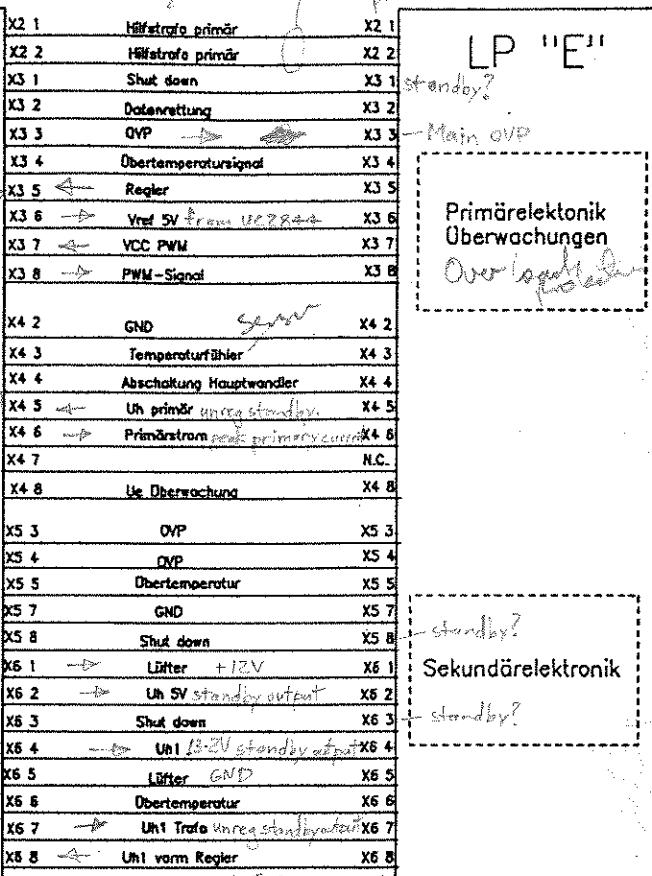 X2 1 Hilfstrafo primär X2 1
X2 2 Hilfstrafo primär X2 2
X3 1 Shut down X3 1 standby?
X3 2 Datenrettung X3 2
X3 3 OVP X3 3 - Main OVP
X3 4 Übertemperatursignal X3 4
X3 5 Regler X3 5
X3 6 Vref 5V from UC2844 X3 6
X3 7 VCC PWM X3 7
X3 8 PWM-Signal X3 8
X4 2 GND X4 2
sensor
X4 3 Temperaturfühler X4 3
X4 4 Abschaltung Hauptwandler X4 4
X4 5 Uh primär unreg standby. X4 5
X4 6 Primärstrom peak primary current X4 6
X4 7 N.C.
X4 8 Ue Überwachung X4 8
X5 3 OVP X5 3
X5 4 OVP X5 4
X5 5 Übertemperatur X5 5
X5 7 GND X5 7
X5 8 Shut down X5 8 - standby?
X6 1 Lüfter +12V X6 1
X6 2 Uh 5V standby output X6 2
X6 3 Shut down X6 3 - standby?
X6 4 Uh1 13.2V standby output X6 4
X6 5 Lüfter GND X6 5
X6 6 Übertemperatur X6 6
X6 7 Uh1 Trafo unreg standby output X6 7
X6 8 Uh1 vorm Regler X6 8
LP "E"
Primärelektonik
Überwachungen
Over load protection
Sekundärelektronik